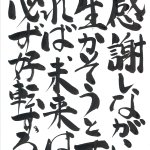 感謝しながら
生かそうとす
れば未来は
必ず好転する